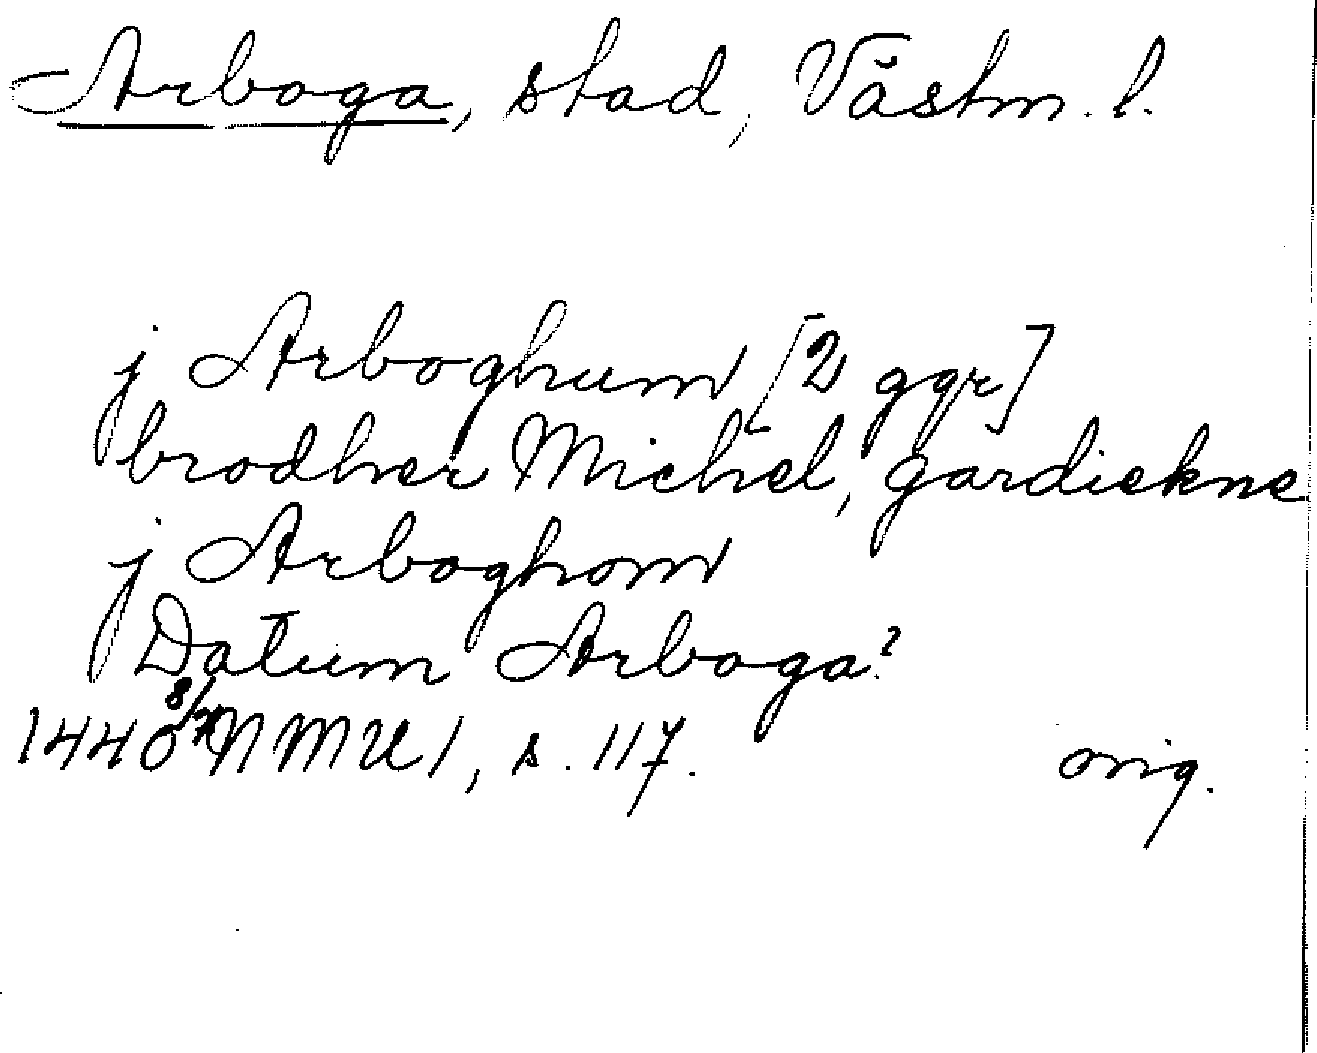 Arboga, stad, Västm. l.
j Arboghum [2 ggr]
brodher Michel, gardiekne
j Arboghom
Datum Arboga?
1440 8/x NMU 1, s. 117. orig.